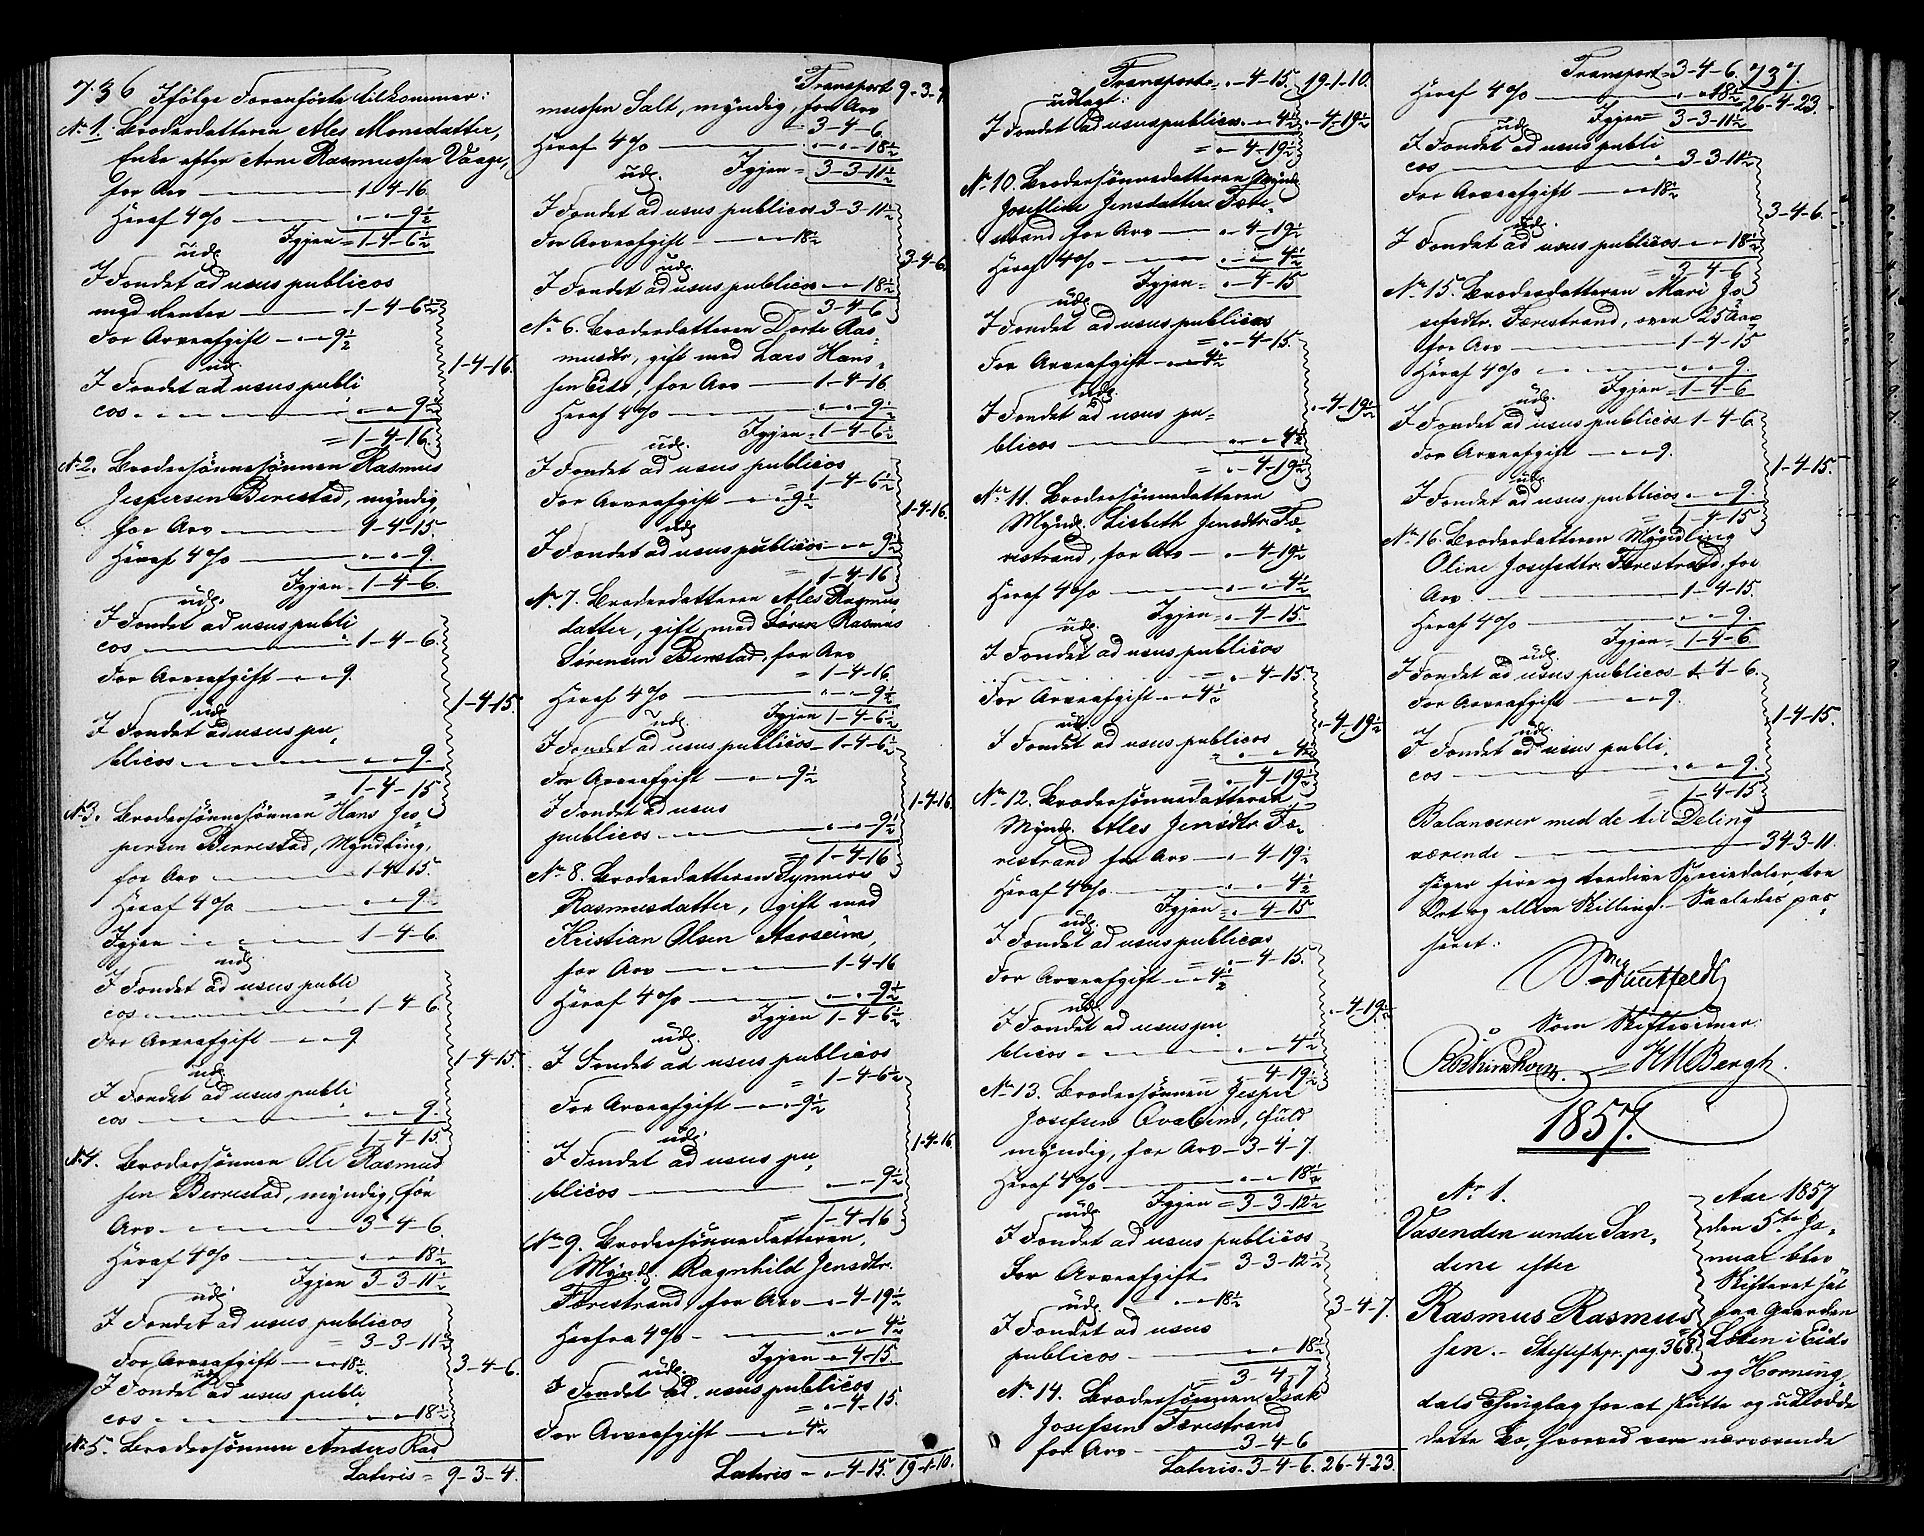 736 Ifölge Foranførte tilkommer:
No 1. Broderdatteren Ales Monsdatter,
Enke efter Arne Rasmussen Vaage,
for Arv 1-4-16.
Heraf 4 % " - " - 9½
Igjen = 1-4-6½
udl.
I Fondet ad usus publicos
med Renter 1-4-6½
For Arveafgift " - " 9½
1-4-16.
udl.
I Fondet ad usus publi
cos " - " - 9½
= 1-4-16.
No 2. Brodersönnesönnen Rasmus
Jespersen Berrestad, myndig,
for Arv 1-4-15.
Heraf 4 % " - " - 9.
Igjen = 1-4-6.
udl.
I Fondet ad usus publi
cos 1-4-6.
For Arveafgift " - " 9.
1-4-15.
udl.
I Fondet ad usus pu-
blicos " - " - 9.
= 1-4-15
No 3. Brodersönnesönnen Hans Jes-
persen Berrestad, Myndling,
for Arv 1-4-15.
Heraf 4 % " - " - 9.
Igjen 1-4-6.
udl.
I Fondet ad usus publi
cos 1-4-6.
For Arveafgift " - " 9
1-4-15.
udl.
I Fondet ad usus publi
cos " - " - 9.
1-4-15.
No 4. Brodersönnen Ole Rasmus
sen Berrestad, myndig, for
Arv 3-4-6.
Heraf 4 % " - " - 18½
Igjen 3-3-11½
udl.
I Fondet ad usus publicos
= 3-3-11½
For Arveafgift " - " 18½
3-4-6.
udl.
I Fondet ad usus publi
cos " - " - 18½
No 5. Brodersönnen Anders Ras
Lateris = 9-3-4.
Transport 9-3-4
mussen Salt, myndig, for Arv
= 3-4-6.
Heraf 4 % " - " - 18½
Igjen = 3-3-11½
udl.
I Fondet ad usus publicos 3-3-11½
For Arveafgift " - " 18½
3-4-6.
udl.
I Fondet ad usus publicos " - " 18½
3-4-6
No 6. Broderdatteren Dorte Ras-
musdtr, gift med Lars Hans-
sen Eite, for Arv 1-4-16.
Heraf 4 % " - " - 9½
Igjen = 1-4-6½
udl.
I Fondet ad usus publicos
= 1-4-6½
For Arveafgift " - " 9½
1-4-16.
udl.
I Fondet ad usus publicos " - " 9½
= 1-4-16
No 7. Broderdatteren Ales Rasmus
datter, gift med Søren Rasmus
Sørensen Berrestad, for Arv
= 1-4-16.
Heraf 4 % " - " - 9½
udl. Igjen 1-4-6½
I Fondet ad usus publicos 1-4-6½
For Arveafgift " - " 9½
1-4-16.
I Fondet ad usus
publicos " - " - 9½
= 1-4-16
No 8. Broderdatteren Synneve
Rasmusdatter, gift med
Kristian Olsen Aarseim,
for Arv 1-4-16
Heraf 4 % " - " - 9½
Igjen 1-4-6½
udl.
I Fondet ad usus publicos
= 1-4-6½
For Arveafgift " - " 9½
1-4-16
udl.
I Fondet ad usus pu-
blicos " - " - 9½
= 1-4-16
No 9. Brodersönnedatteren,
Myndl. Ragnhild Jensdtr.
Færestrand, for Arv " - 4-19½
Herfra 4 % " - " - 4½
Igjen " - 4-15
udl.
I Fondet ad usus publicos
= " - 4-15.
For Arveafgift " - " 4½
Lateris " - 4-15. 19-1-10.
Transport = " - 4-15. 19-1-10.
udlagt:
I Fondet ad usus publicos " - 4½ " - 4-19½
= " - 4-19½
No 10. Brodersönnedatteren Myndl.
Josefine Jensdatter Fære-
strand for Arv " - 4-19½
Heraf 4 % " - " 4½
Igjen = " - 4-15
udl.
I Fondet ad usus publicos
= " - 4-15.
For Arveafgift " - " 4½
" - 4-19½
udl.
I Fondet ad usus pu-
blicos " - " 4½
= " - 4-19½
No 11. Brodersönnedatteren
Myndl. Lisbeth Jensdtr. Fæ-
restrand, for Arv " - 4-19½
Heraf 4 % " - " 4½
Igjen = " - 4-15.
udl.
I Fondet ad usus publicos
= " - 4-15.
For Arveafgift " - " 4½
" - 4-19½
udl.
I Fondet ad usus publicos
" - " 4½
= " - 4-19½
No 12. Brodersönnedatteren
Myndl. Ales Jensdtr. Fæ-
restrand for Arv " - 4-19½
Heraf 4 % " - " 4½
Igjen = " - 4-15
udl.
I Fondet ad usus publicos
= " - 4-15.
For Arveafgift " - " 4½
" - 4-19½
udl.
I Fondet ad usus pu
blicos " - " 4½
= " - 4-19½
No 13. Brodersönnen Jesper
Josefsen Qvalvim, fuld
myndig, for Arv 3-4-7.
Heraf 4 % " - " - 18½
Igjen = 3-3-12½
udl.
I Fondet ad usus publicos
= 3-3-12½
For Arveafgift
" - " 18½
3-4-7.
udl.
I Fondet ad usus
publicos " - " 18½
= 3-4-7
No 14. Brodersönnen Isak
Josefsen Færestrand
for Arv 3-4-6
Lateris 3-4-6. 26-4-23.
Transport 3-4-6. 737.
26-4-23.
Heraf 4 % " - " 18½
Igjen = 3-3-11½
udl.
I Fondet ad usus publi
cos 3-3-11½
For Arveafgift " - " 18½
3-4-6.
udl.
I Fondet ad usus publicos " - " 18½
= 3-4-6
No 15. Broderdatteren Mari Jo-
sefsdtr. Færestrand, over 25 Aar
for Arv 1-4-15
Heraf 4 % " - " 9.
Igjen = 1-4-6
udl.
I Fondet ad usus publicos 1-4-6
For Arveafgift " - " 9.
1-4-15.
udl.
I Fondet ad usus publicos " - " 9
= 1-4-15
No 16. Broderdatteren Myndling
Oline Josefsdtr. Færestrand, for
Arv 1-4-15.
Heraf 4 % " - " 9.
Igjen = 1-4-6
udl.
I Fondet ad usus publicos 1-4-6.
For Arveafgift " - " 9.
1-4-15.
udl.
I Fondet ad usus publi-
cos " - " 9.
= 1-4-15
Balancerer med de til Deling
værende 34-3-11.
siger fire og tredive Speciedaler, tre
Ort og elleve Skilling. Saaledes pas-
seret:
Huitfeldt
Som Skiftevidner:
H M Bergh.
1857.
No 1.
Vasenden under San-
dene efter
Rasmus Rasmus
sen. - Skiftesfpr. pag. 368.
Aar 1857
den 5te Ja-
nuar blev
Skifteret sat
paa Gaarden
Loten i Eids
og Horning-
dals Thinglag for at slutte og udlodde
dette Bo, hvorved vare nærværende